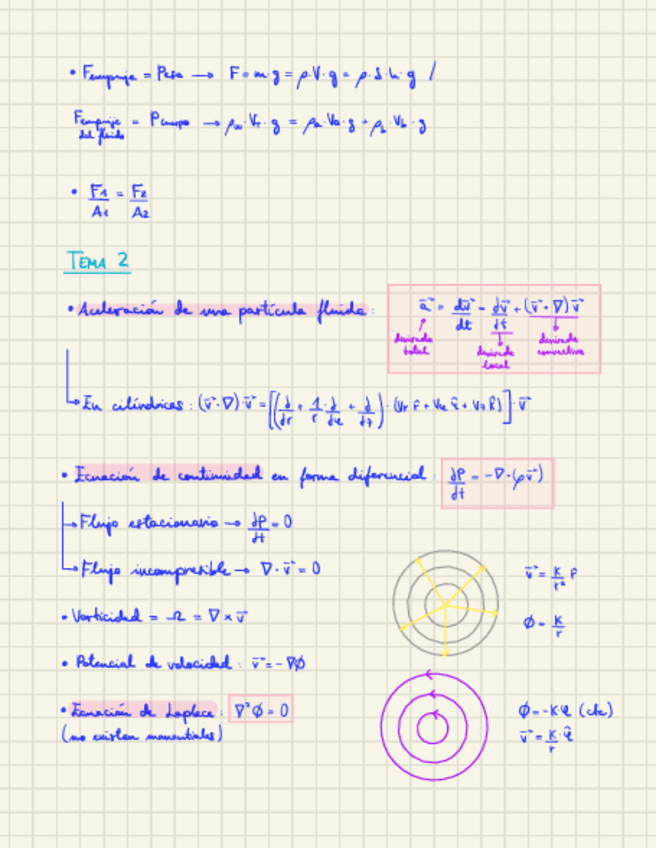 • Fempuje = Peso → F = m·g = ρ·V·g = ρ·S·h·g /
Fempuje del fluido = Pcuerpo → ρw·Vt·g = ρa·Va·g + ρb·Vb·g
• F1/A1 = F2/A2
TEMA 2
• Aceleración de una partícula fluida: a⃗ = dv⃗/dt = ∂v⃗/∂t + (v⃗·∇)v⃗
derivada total derivada local derivada convectiva
En cilíndricas: (v⃗·∇)·v⃗ = [(∂/∂r + 1/r·∂/∂φ + ∂/∂z)·(Vr r̂ + Vφ φ̂ + Vz k̂)]·v⃗
• Ecuación de continuidad en forma diferencial: ∂ρ/∂t = -∇·(ρv⃗)
→ Flujo estacionario → ∂ρ/∂t = 0
→ Flujo incompresible → ∇·v⃗ = 0
v⃗ = K/r² r̂
• Vorticidad = Ω = ∇×v⃗
φ = K/r
• Potencial de velocidad: v⃗ = -∇φ
• Ecuación de Laplace: ∇²φ = 0
(no existen manantiales)
φ = -Kφ (cte)
v⃗ = K/r·φ̂